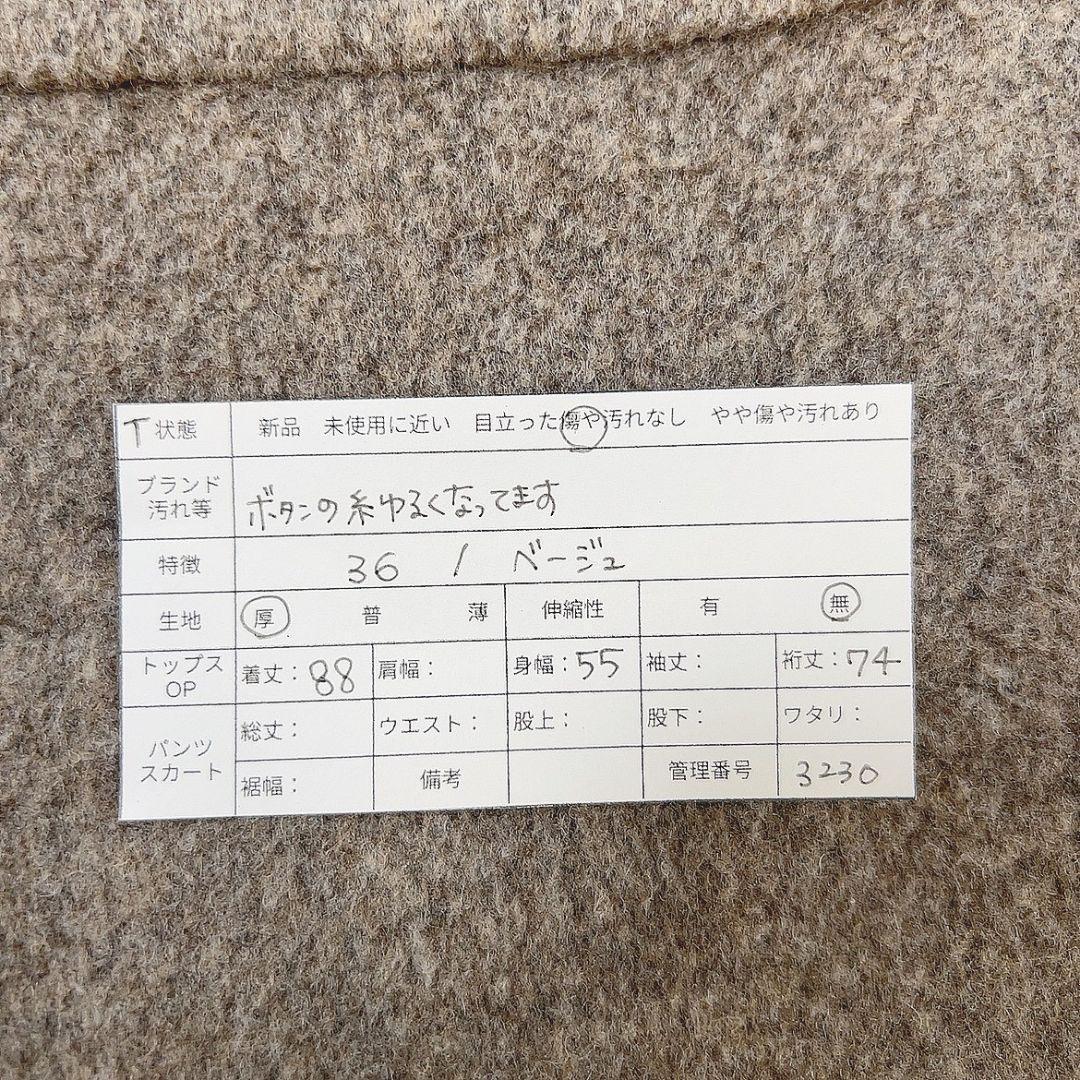 T 状態 新品 未使用に近い 目立った傷や汚れなし やや傷や汚れあり
ブランド
汚れ等 ボタンの糸ゆるくなってます
特徴 36 / ベージュ
生地 厚 普 薄 伸縮性 有 無
トップス
OP 着丈：88 肩幅： 身幅：55 袖丈： 裄丈：74
パンツ
スカート 総丈： ウエスト： 股上： 股下： ワタリ：
裾幅： 備考 管理番号 3230